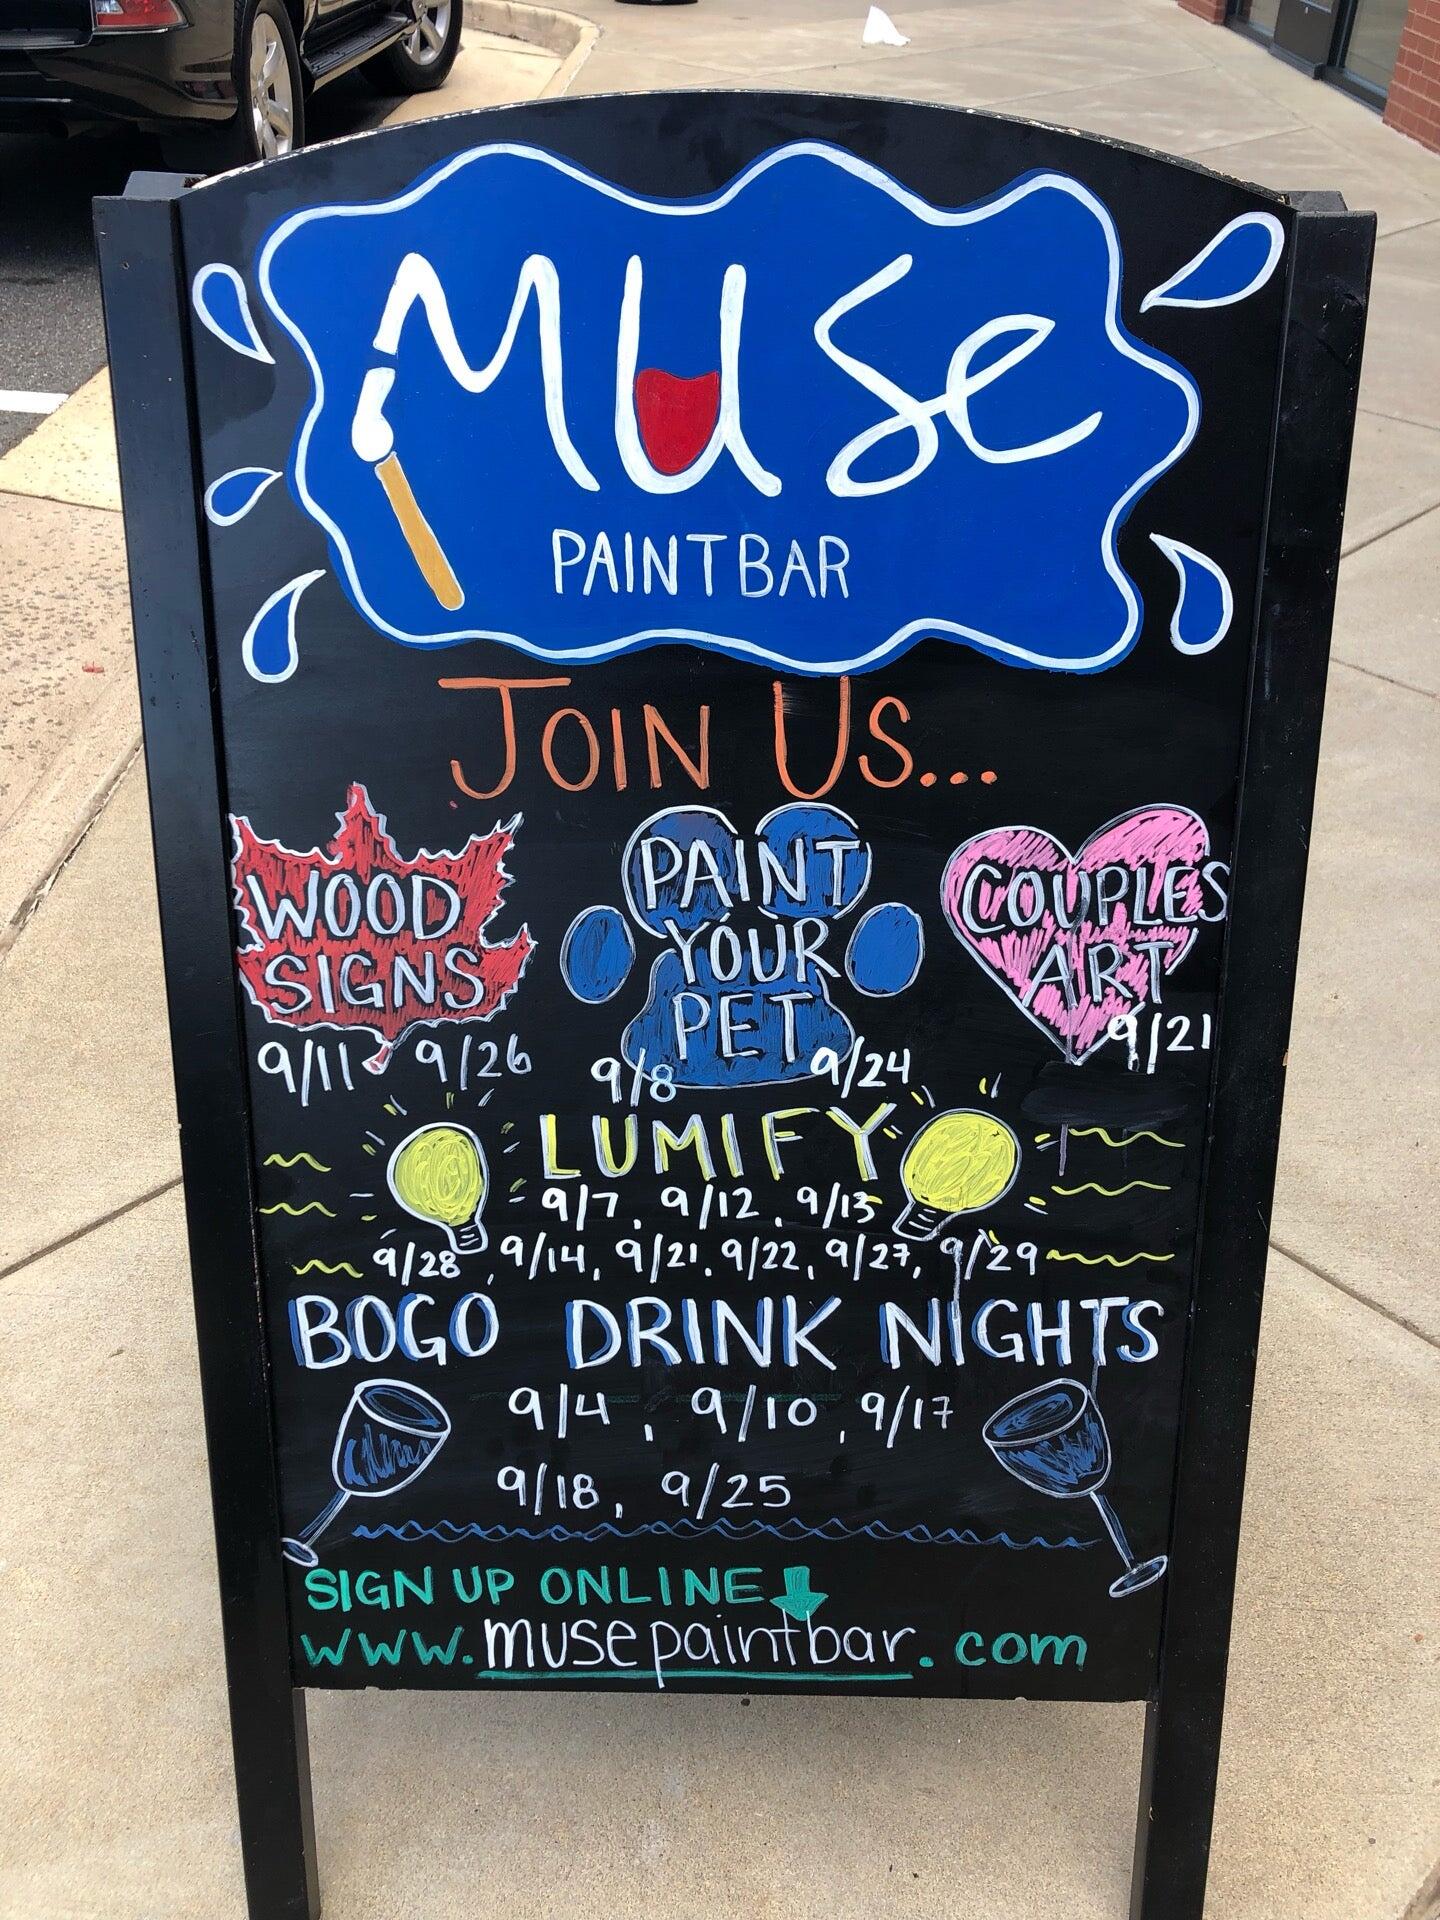 MUSE
PAINTBAR
JOIN US...
WOOD
SIGNS
9/11 9/26
PAINT
YOUR
PET
9/8 9/24
COUPLES
ART
9/21
LUMIFY
9/7, 9/12, 9/13
9/28, 9/14, 9/21, 9/22, 9/27, 9/29
BOGO DRINK NIGHTS
9/4, 9/10, 9/17
9/18, 9/25
SIGN UP ONLINE
www.musepaintbar.com